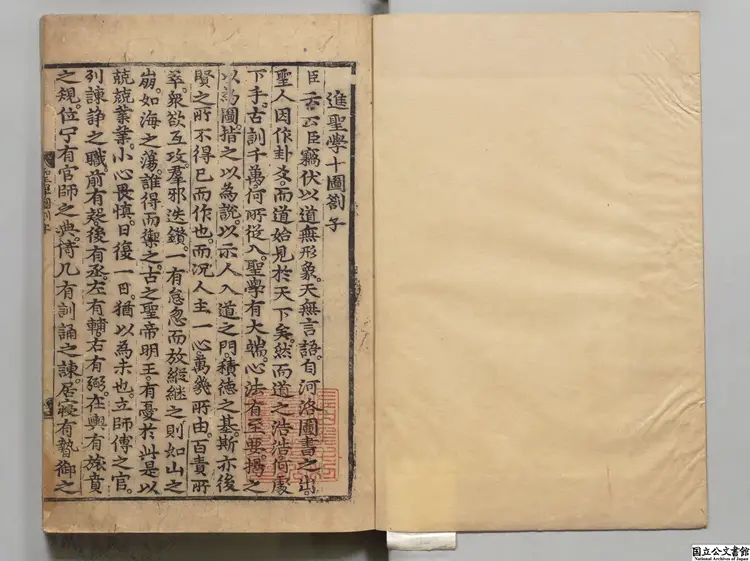 進聖學十圖劄子
臣 臣竊伏以道無形象天無言語自河洛圖書之出
聖人因作卦爻而道始見於天下矣然而道之浩浩何處
下手古訓千萬何所從入聖學有大端心法有至要揭之
以為圖指之以為說以示人入道之門積德之基斯亦後
賢之所不得已而作也而況人主一心萬幾所由百責所
萃衆欲互攻羣邪迭鑽一有怠忽而放縱繼之則如山之
崩如海之蕩誰得而禦之古之聖帝明王有憂於此是以
兢兢業業小心畏慎日復一日猶以為未也立師傅之官
列諫諍之職前有疑後有丞左有輔右有弼在輿有旅賁
之規位宁有官師之典倚几有訓誦之諫居寢有暬御之
聖學十圖劄子
国立公文書館
National Archives of Japan